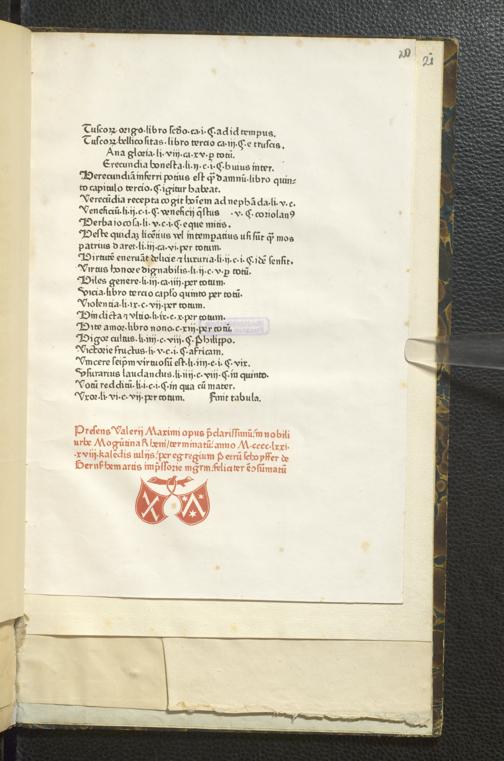 21
Tuscoꝝ origo·libro scđo·ca·i·C·ad id tempus.
Tuscoꝝ bellicositas·libro tercio ca·iij·C·e truscis.
Ana gloria·li·viij·ca·xv·ꝑ totū.
Erecundia honesta·li·ij·c·i·C·huius inter.
Verecundiā inferri potius est ꝙ̄ damnū·libro quin-
to capitulo tercio·C·igitur habeat.
Verecūdia recepta cogit hoīem ad nephāda·li·v·c.
Veneficiū·li·ij·c·i·C·veneficij q̄stus ·v·C·coriolanꝰ
Verba iocosa·li·v·c·i·C·eque mitis.
Veste quidaꝫ licētius vel intempatius usi sūt ꝙ̄ mos
patrius daret·li·iij·ca·vi·per totum.
Virtutē eneruāt delicie ⁊ luxuria·li·ij·c·i·C·idē sensit.
Virtus honore dignabilis·li·ij·c·v·ꝑ totū.
Viles genere·li·iij·ca·iiij·per totum.
Vicia·libro tercio capło quinto per totū.
Violentia·li·ix·c·vij·per totum.
Vindicta ⁊ ultio·li·ix·c·x·per totum.
Vite amor·libro nono·c·xiij·per totū.
Vigor cultus·li·iij·c·viij·C·Philippo.
Victorie fructus·li·v·c·i·C·africam.
Vincere seipm̄ virtuosū est·li·iiij·c·i·C·vix.
Vsurarius laudandus·li·iiij·c·viij·C·in quinto.
Votū redditū·li·i·c·i·C·in qua cū mater.
Vxor·li·vi·c·vij·per totum. Finit tabula.
Presens Valerij Maximi opus p̄clarissimū·in nobili
urbe Mogūtina Rheni/terminatū·anno M·cccc·lxxi·
·xviij·kalēdis iulijs·per egregium Petrū schoyffer de
Gernsshem artis impssorie mgr̄m·feliciter ē ɔsumatū